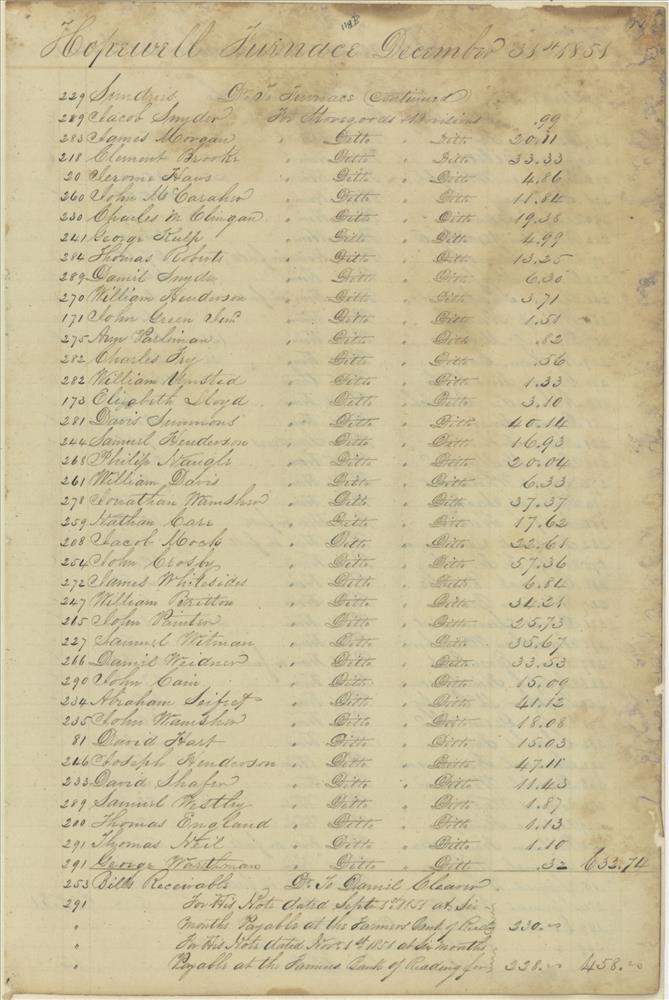 118B
Hopewell Furnace December 31st 1851
229 Sundries Dr. To Furnace Continued
289 Jacob Snyder For Storegoods & .99
283 James Morgan " Ditto " Ditto 20.11
218 Clement Brooke " Ditto " Ditto 33.33
20 Jerome Haws " Ditto " Ditto 4.86
260 John McCaraher " Ditto " Ditto 11.84
230 Charles M Clingan " Ditto " Ditto 19.38
241 George Kulp " Ditto " Ditto 4.99
284 Thomas Roberts " Ditto " Ditto 13.25
289 Daniel Snyder " Ditto " Ditto 6.30
270 William Henderson " Ditto " Ditto 3.71
171 John Green Senr " Ditto " Ditto 1.51
275 Ann Parliman " Ditto " Ditto .82
282 Charles Fry " Ditto " Ditto .56
282 William Umsted " Ditto " Ditto 1.33
173 Elizabeth Lloyd " Ditto " Ditto 3.10
281 Davis Simmons " Ditto " Ditto 40.14
244 Samuel Henderson " Ditto " Ditto 16.93
268 Philip Naugle " Ditto " Ditto 20.04
261 William Davis " Ditto " Ditto 6.33
278 Jonathan Wamsher " Ditto " Ditto 37.37
259 Nathan Care " Ditto " Ditto 17.62
208 Jacob Mock " Ditto " Ditto 22.61
254 John Crosby " Ditto " Ditto 57.36
272 James Whitesides " Ditto " Ditto 6.84
247 William Britton " Ditto " Ditto 34.21
265 John Painter " Ditto " Ditto 25.73
227 Samuel Witman " Ditto " Ditto 35.67
266 Daniel Weidner " Ditto " Ditto 33.53
290 John Cain " Ditto " Ditto 15.00
234 Abraham Seifret " Ditto " Ditto 41.12
235 John Wamsher " Ditto " Ditto 18.08
81 David Hart " Ditto " Ditto 15.03
246 Joseph Henderson " Ditto " Ditto 47.18
233 David Shafer " Ditto " Ditto 11.43
289 Samuel Westley " Ditto " Ditto 1.87
200 Thomas England " Ditto " Ditto 1.13
291 Thomas Neil " Ditto " Ditto 1.10
291 George Warthman " Ditto " Ditto .32 632.74
253 Bills Receivable Dr. To Daniel Cleaver
291 For His Note dated Sept 1st 1851 at Six
" months Payable at the Farmers Bank of Readg 230.00
" For His Note dated Novr 1st 1851 at six months
" Payable at the Farmers Bank of Reading for 228.00 458.00